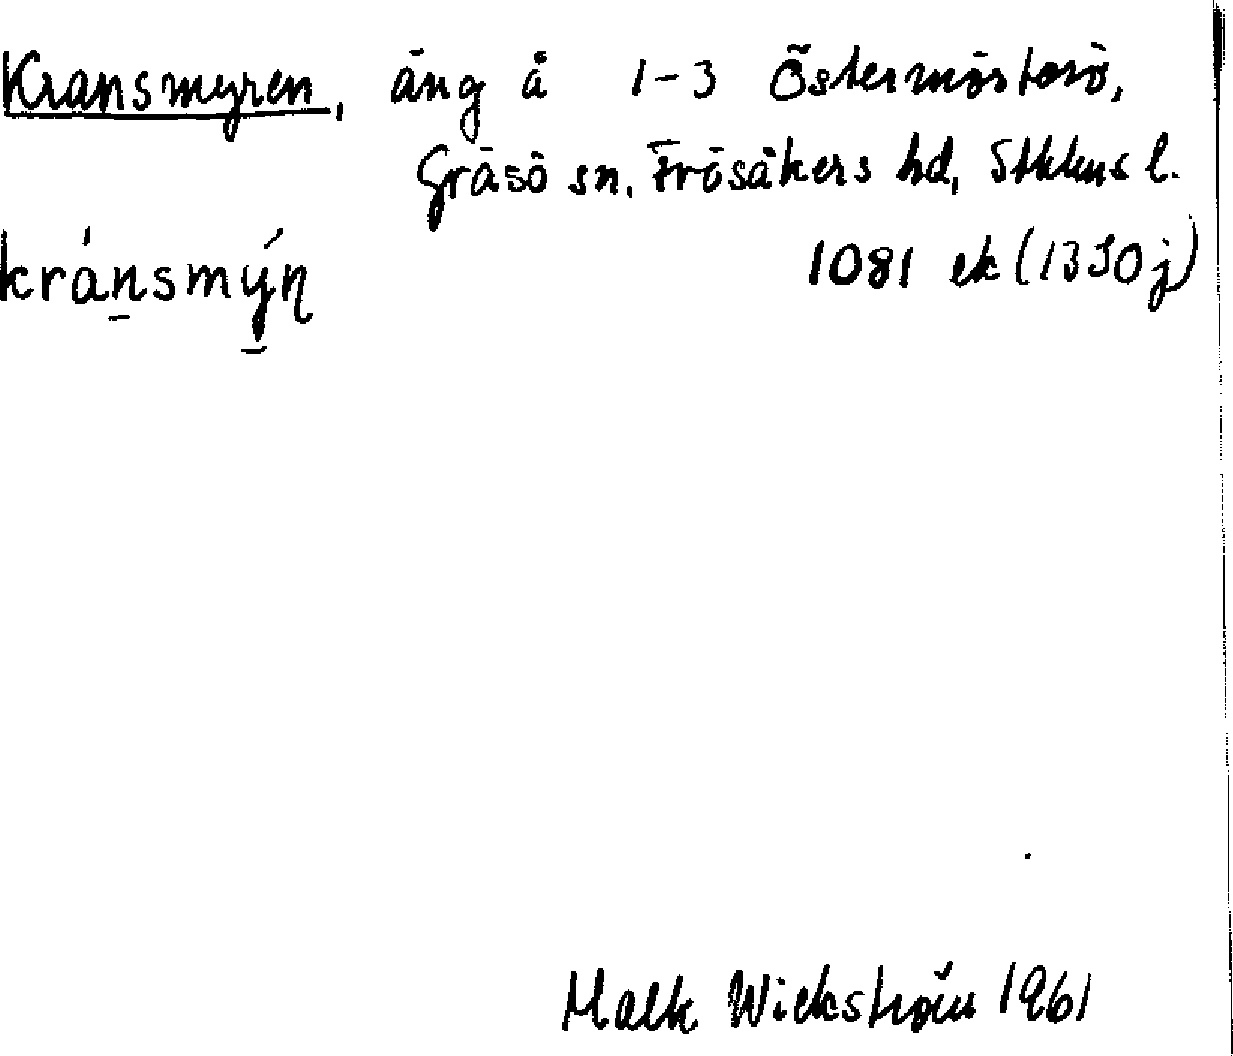 Kransmyren, äng å 1-3 Östermörtarö,
Gräsö sn, Frösåkers hd, Sthlms l.
kránsmýn 1081 ek (1330j)
Wickström 1961